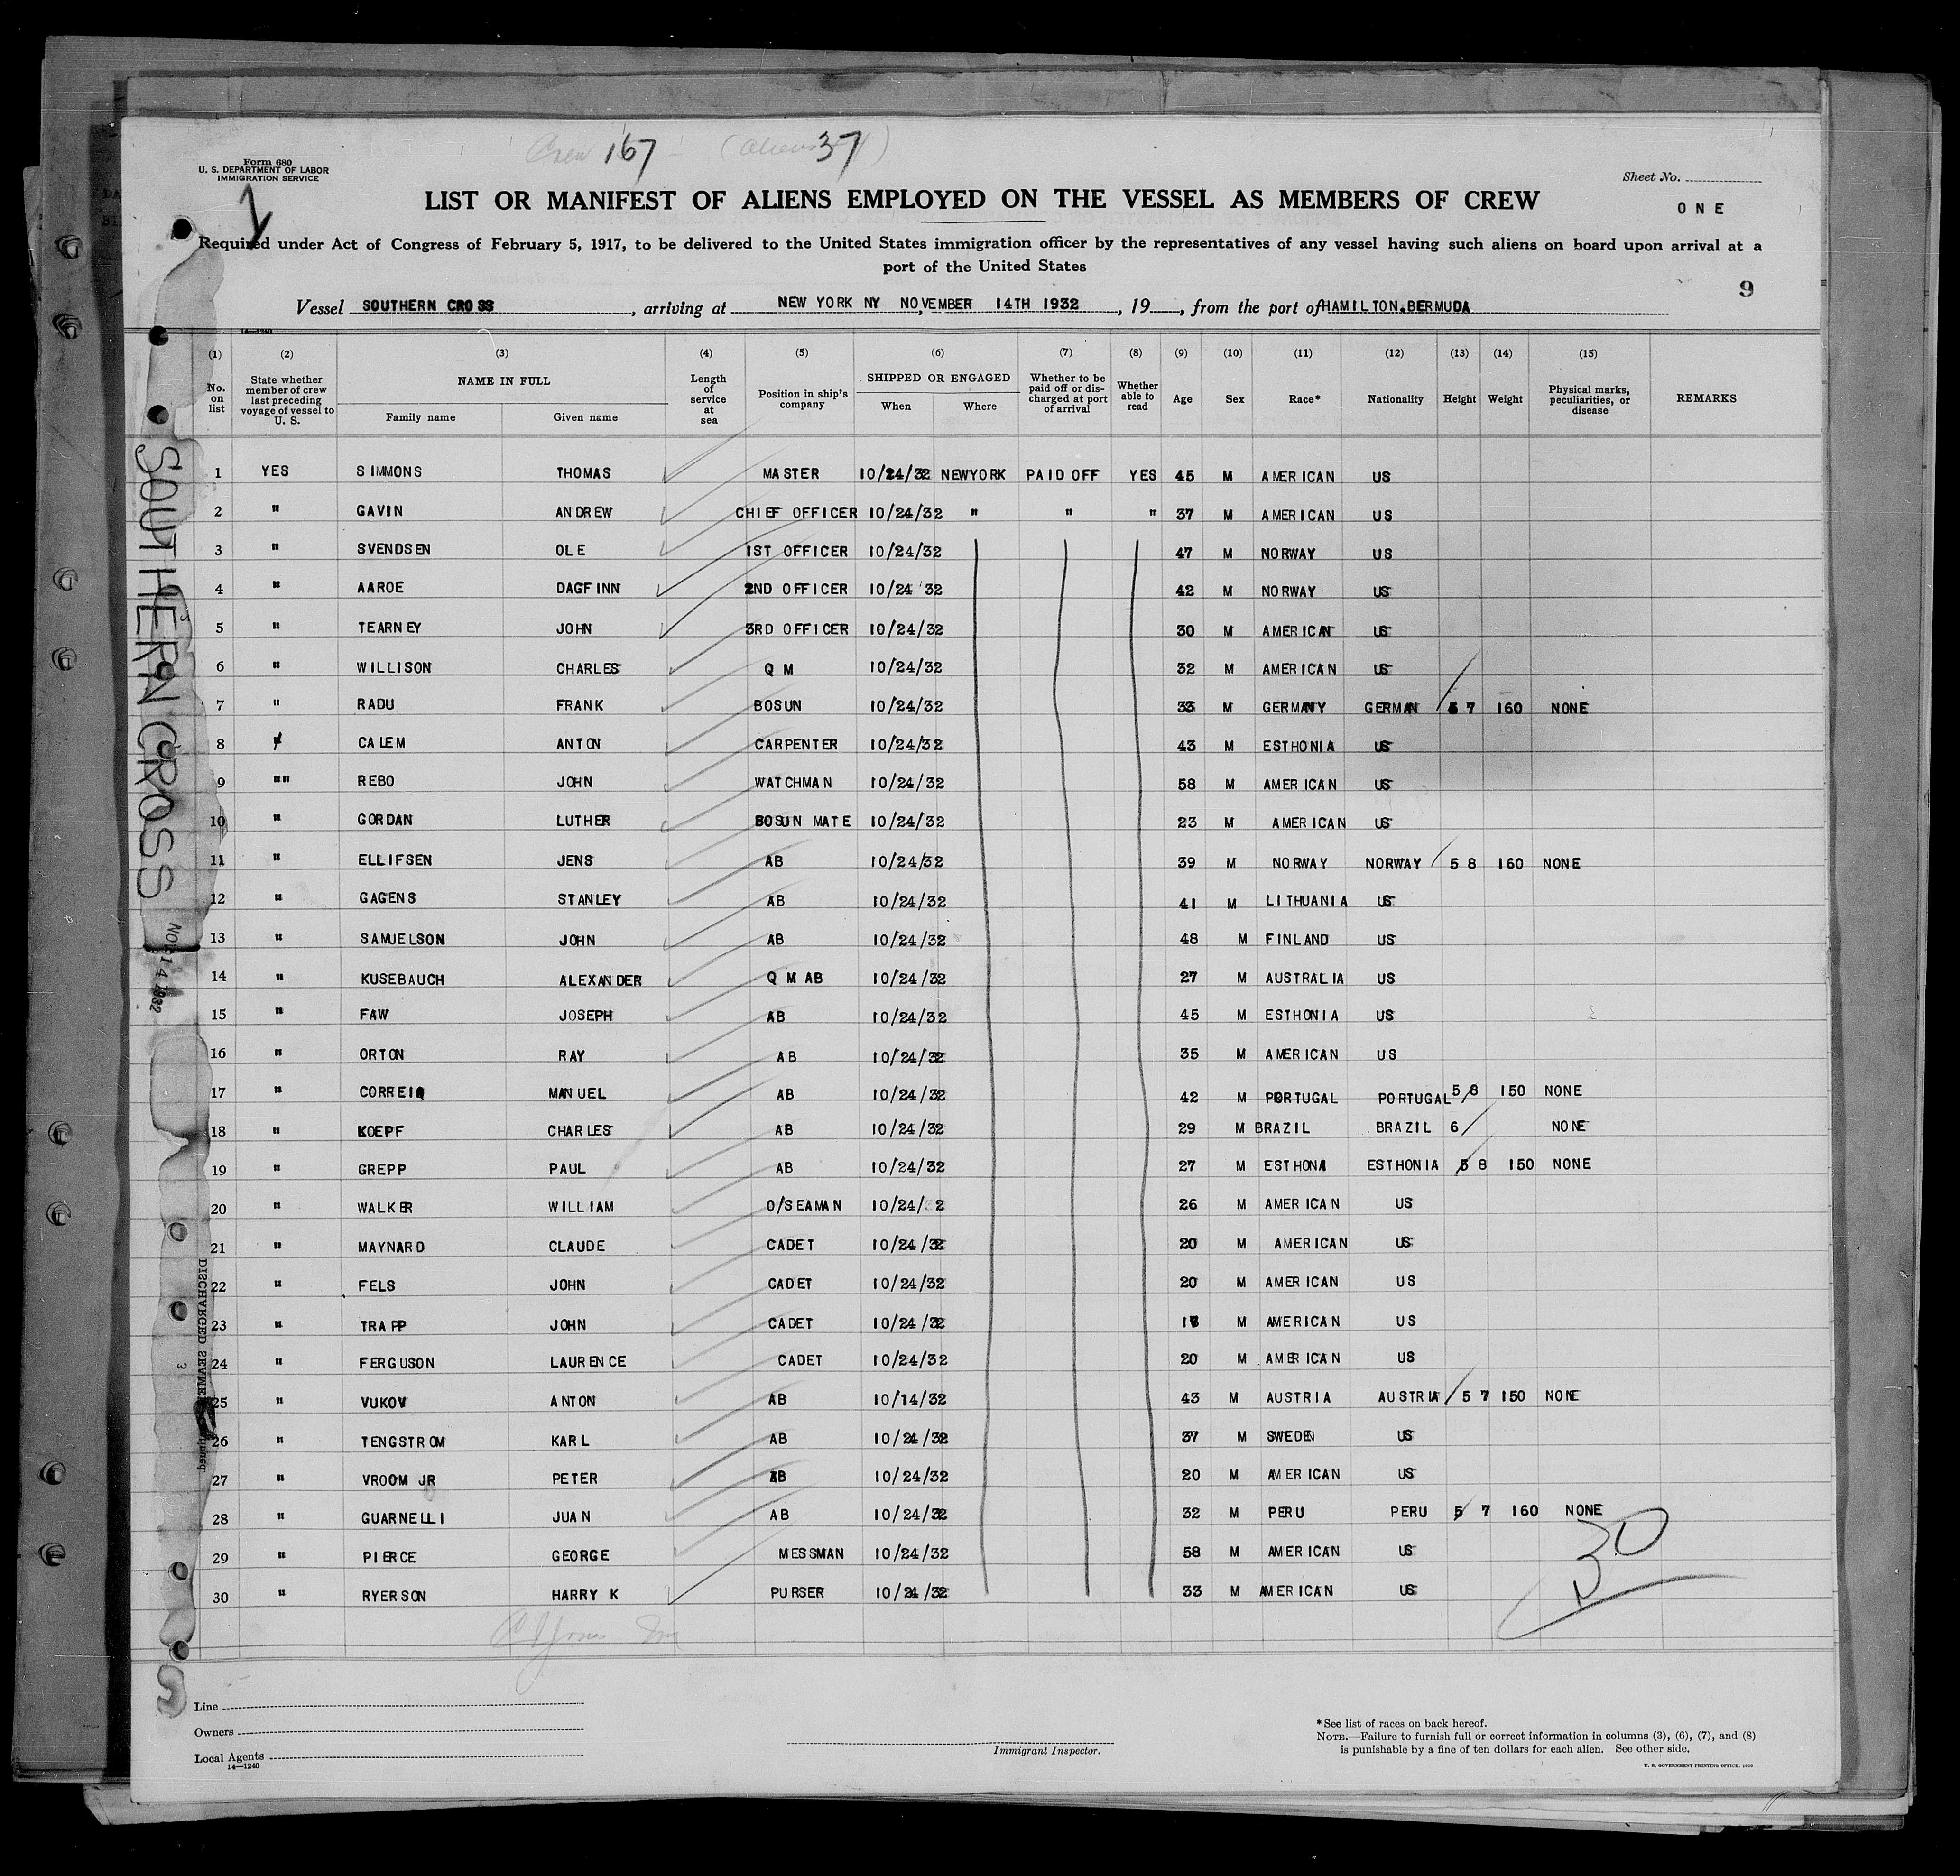 Crew 167 (Aliens 37)
Form 680
U. S. DEPARTMENT OF LABOR
IMMIGRATION SERVICE
1
Sheet No.
ONE
LIST OR MANIFEST OF ALIENS EMPLOYED ON THE VESSEL AS MEMBERS OF CREW
Required under Act of Congress of February 5, 1917, to be delivered to the United States immigration officer by the representatives of any vessel having such aliens on board upon arrival at a
port of the United States
9
Vessel SOUTHERN CROSS, arriving at NEW YORK NY NOVEMBER 14TH 1932, 19, from the port of HAMILTON.BERMUDA
14—1240
(1) (2) (3) (4) (5) (6) (7) (8) (9) (10) (11) (12) (13) (14) (15)
No. on list | State whether member of crew last preceding voyage of vessel to U. S. | NAME IN FULL | Family name | Given name | Length of service at sea | Position in ship's company | SHIPPED OR ENGAGED | When | Where | Whether to be paid off or discharged at port of arrival | Whether able to read | Age | Sex | Race* | Nationality | Height | Weight | Physical marks, peculiarities, or disease | REMARKS
1 YES SIMMONS THOMAS MASTER 10/24/32 NEWYORK PAID OFF YES 45 M AMERICAN US
2 " GAVIN ANDREW CHIEF OFFICER 10/24/32 " " " 37 M AMERICAN US
3 " SVENDSEN OLE 1ST OFFICER 10/24/32 47 M NORWAY US
4 " AAROE DAGFINN 2ND OFFICER 10/24 32 42 M NORWAY US
5 " TEARNEY JOHN 3RD OFFICER 10/24/32 30 M AMERICAN US
6 " WILLISON CHARLES Q M 10/24/32 32 M AMERICAN US
7 " RADU FRANK BOSUN 10/24/32 33 M GERMANY GERMAN 5 7 160 NONE
8 " CALEM ANTON CARPENTER 10/24/32 43 M ESTHONIA US
9 "" REBO JOHN WATCHMAN 10/24/32 58 M AMERICAN US
10 " GORDAN LUTHER BOSUN MATE 10/24/32 23 M AMERICAN US
11 " ELLIFSEN JENS AB 10/24/32 39 M NORWAY NORWAY 5 8 160 NONE
12 " GAGENS STANLEY AB 10/24/32 41 M LITHUANIA US
13 " SAMUELSON JOHN AB 10/24/32 48 M FINLAND US
14 " KUSEBAUCH ALEXANDER Q M AB 10/24/32 27 M AUSTRALIA US
15 " FAW JOSEPH AB 10/24/32 45 M ESTHONIA US
16 " ORTON RAY AB 10/24/32 35 M AMERICAN US
17 " CORREIO MANUEL AB 10/24/32 42 M PORTUGAL PORTUGAL 5 8 150 NONE
18 " KOEPF CHARLES AB 10/24/32 29 M BRAZIL BRAZIL 6 NONE
19 " GREPP PAUL AB 10/24/32 27 M ESTHONA ESTHONIA 5 8 150 NONE
20 " WALKER WILLIAM O/SEAMAN 10/24/32 26 M AMERICAN US
21 " MAYNARD CLAUDE CADET 10/24/32 20 M AMERICAN US
22 " FELS JOHN CADET 10/24/32 20 M AMERICAN US
23 " TRAPP JOHN CADET 10/24/32 M AMERICAN US
24 " FERGUSON LAURENCE CADET 10/24/32 20 M AMERICAN US
25 " VUKOV ANTON AB 10/14/32 43 M AUSTRIA AUSTRIA 5 7 150 NONE
26 " TENGSTROM KARL AB 10/24/32 37 M SWEDEN US
27 " VROOM JR PETER AB 10/24/32 20 M AMERICAN US
28 " GUARNELLI JUAN AB 10/24/32 32 M PERU PERU 5 7 160 NONE
29 " PIERCE GEORGE MESSMAN 10/24/32 58 M AMERICAN US
30 " RYERSON HARRY K PURSER 10/24/32 33 M AMERICAN US
30
SOUTHERN CROSS
NOV 14 1932
DISCHARGED SEAMEN
3
Line
Owners
Local Agents
14—1240
Immigrant Inspector.
*See list of races on back hereof.
NOTE.—Failure to furnish full or correct information in columns (3), (6), (7), and (8)
is punishable by a fine of ten dollars for each alien. See other side.
U. S. GOVERNMENT PRINTING OFFICE